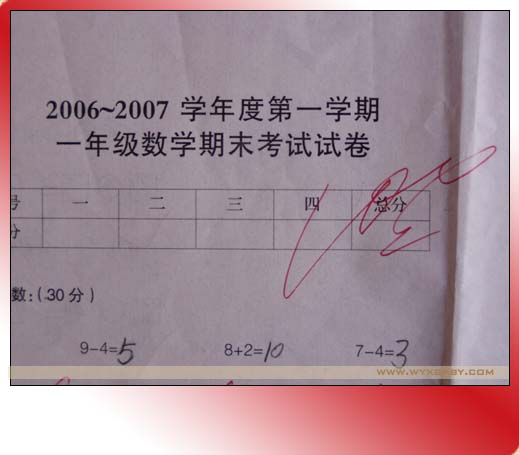 2006~2007 学年度第一学期
一年级数学期末考试试卷
号 一 二 三 四 总分
分
数:(30分)
9-4=5 8+2=10 7-4=3
WWW.WYXBABY.COM